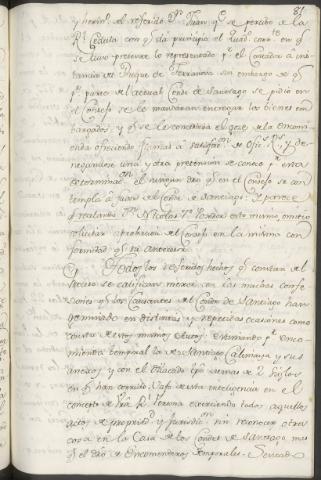 81
y herm.º el referido D.n Juan q.e se percibe de la
R.l Cedula con q.e da principio el quad.
se tuvo presente lo representado p.r el Contador a ins
tancia del Duque de Terranova sin embargo de q.e
p.r parte del actual Conde de Santiago se pidio en
el Consejo se le mandasen entregar los bienes em
bargados, y q.e se le concediera el goze de la Encom
ienda ofreciendo fianzas a satisfac.on de Ofic.s R.s, y de
negandose una y otra pretension se conoce p.r esta
determinac.on el ningun dro q.e en el Consejo se con
templa a fauor del Conde de Santiago: y parece
q.e relando D.n Nicolas el Contador este mismo
solicitar aprobacion del Consejo en la misma con
formidad q.e su antecesor.
Todos los referidos hechos q.e constan del
Proceso se califican menor con las muchas confe
siones q.e los Causantes del Conde de Santiago han
geminado en distintas y repetidas ocasiones como
consta de estos mismos Autos: enunciando p.r Enco
mienda temporal la de Santiago Calimaya y sus
anexos, y con el dilatado tpo de mas de 2 Siglos
en q.e han corrido bajo de esta inteligencia en el
concepto de Vra R.l Persona exerciendo todos aquellos
actos de propried.d y jurisdic.on sin reconocer otra
cosa en la Casa de los Condes de Santiago mas
q.e el dro de Encomenderos temporales. Siendo